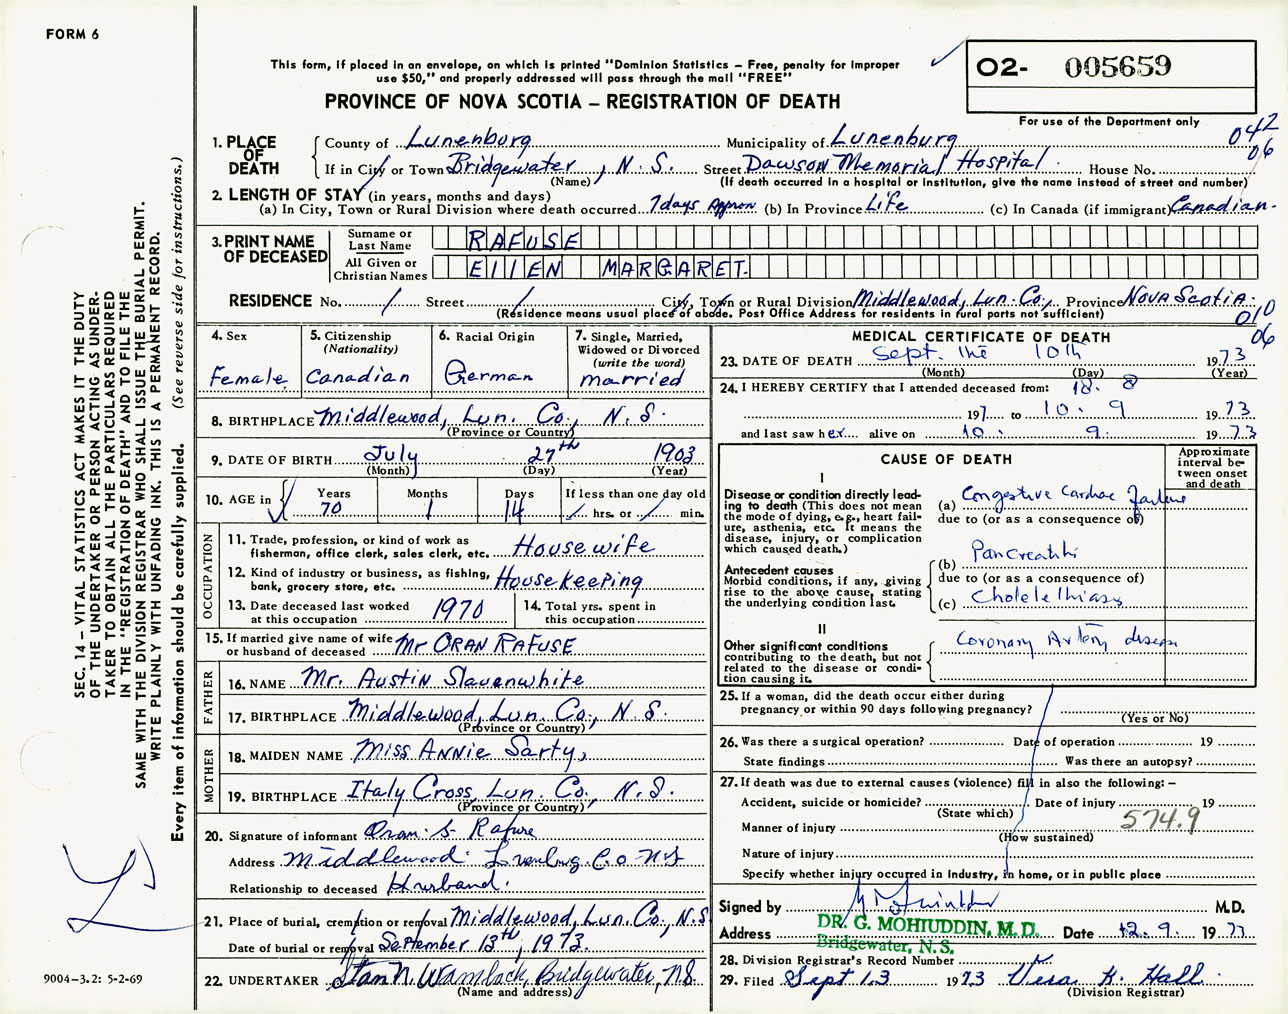 FORM 6
This form, if placed in an envelope, on which is printed "Dominion Statistics – Free, penalty for improper
use $50," and properly addressed will pass through the mail "FREE"
PROVINCE OF NOVA SCOTIA – REGISTRATION OF DEATH
02- 005659
For use of the Department only
042
06
1. PLACE OF DEATH County of Lunenburg Municipality of Lunenburg
If in City or Town Bridgewater, N.S. Street Dawson Memorial Hospital House No.
(Name) (If death occurred in a hospital or institution, give the name instead of street and number)
2. LENGTH OF STAY (in years, months and days)
(a) In City, Town or Rural Division where death occurred 7 days Approx (b) In Province Life (c) In Canada (if immigrant) Canadian.
3. PRINT NAME OF DECEASED
Surname or Last Name RAFUSE
All Given or Christian Names ELLEN MARGARET.
RESIDENCE No. / Street / City, Town or Rural Division Middlewood, Lun. Co., Province Nova Scotia.
(Residence means usual place of abode. Post Office Address for residents in rural parts not sufficient)
010
06
4. Sex Female
5. Citizenship (Nationality) Canadian
6. Racial Origin German
7. Single, Married, Widowed or Divorced (write the word) married
8. BIRTHPLACE Middlewood, Lun. Co., N.S.
(Province or Country)
9. DATE OF BIRTH July 27th 1903
(Month) (Day) (Year)
10. AGE in Years 70 Months 1 Days 14 If less than one day old / hrs. or / min.
OCCUPATION
11. Trade, profession, or kind of work as
fisherman, office clerk, sales clerk, etc. Housewife
12. Kind of industry or business, as fishing,
bank, grocery store, etc. Housekeeping
13. Date deceased last worked
at this occupation 1970
14. Total yrs. spent in
this occupation
15. If married give name of wife
or husband of deceased Mr ORAN RAFUSE
FATHER
16. NAME Mr. Austin Slauenwhite
17. BIRTHPLACE Middlewood, Lun. Co., N.S.
(Province or Country)
MOTHER
18. MAIDEN NAME Miss Annie Sarty,
19. BIRTHPLACE Italy Cross, Lun. Co., N.S.
(Province or Country)
20. Signature of informant Oran S Rafuse
Address Middlewood Lunenburg Co NS
Relationship to deceased Husband.
21. Place of burial, cremation or removal Middlewood, Lun. Co., N.S.
Date of burial or removal September 13th, 1973.
22. UNDERTAKER Wamback, Bridgewater, N.S.
(Name and address)
MEDICAL CERTIFICATE OF DEATH
23. DATE OF DEATH Sept. the 10th 1973
(Month) (Day) (Year)
24. I HEREBY CERTIFY that I attended deceased from: 18. 8
197 to 10. 9 1973
and last saw her alive on 10. 9. 1973
CAUSE OF DEATH
Approximate interval between onset and death
I
Disease or condition directly leading to death (This does not
mean the mode of dying, e.g., heart failure, asthenia, etc. It means the
disease, injury, or complication
which caused death.)
(a) Congestive Cardiac failure
due to (or as a consequence of)
Antecedent causes
Morbid conditions, if any, giving
rise to the above cause, stating
the underlying condition last.
(b) Pancreatitis
due to (or as a consequence of)
(c) Cholelithiasis
II
Other significant conditions
contributing to the death, but not
related to the disease or condition causing it.
Coronary Artery disease
25. If a woman, did the death occur either during
pregnancy or within 90 days following pregnancy?
(Yes or No)
26. Was there a surgical operation? Date of operation 19
State findings Was there an autopsy?
27. If death was due to external causes (violence) fill in also the following: –
Accident, suicide or homicide? Date of injury 19
(State which)
574.9
Manner of injury
(How sustained)
Nature of injury
Specify whether injury occurred in Industry, in home, or in public place
Signed by M.D.
Address DR. G. MOHIUDDIN, M.D. Date 12.9. 1973
Bridgewater, N.S.
28. Division Registrar's Record Number
29. Filed Sept 13 1973 Vera K. Hall
(Division Registrar)
SEC. 14 – VITAL STATISTICS ACT MAKES IT THE DUTY
OF THE UNDERTAKER OR PERSON ACTING AS UNDER-
TAKER TO OBTAIN ALL THE PARTICULARS REQUIRED
IN THE "REGISTRATION OF DEATH" AND TO FILE THE
SAME WITH THE DIVISION REGISTRAR WHO SHALL ISSUE THE BURIAL PERMIT.
WRITE PLAINLY WITH UNFADING INK. THIS IS A PERMANENT RECORD.
Every item of information should be carefully supplied. (See reverse side for instructions.)
9004-3.2: 5-2-69